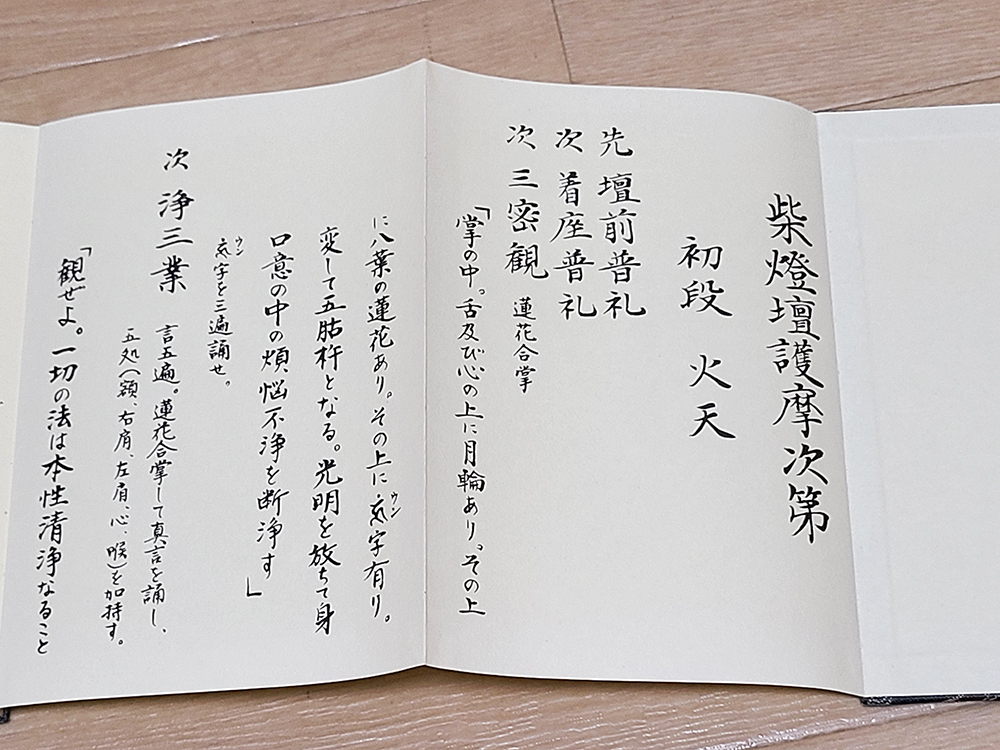 柴燈壇護摩次第
初段 火天
先 壇前普礼
次 着座普礼
次 三密観 蓮花合掌
「掌の中。舌及び心の上に月輪あり。その上
に八葉の蓮花あり。その上に 字有り。
ウン
変して五肪杵となる。光明を放ちて身
口意の中の煩悩不浄を断浄す」
字を三遍誦せ。
ウン
次 浄三業
言五遍。蓮花合掌して真言を誦し、
五処(額、右肩、左肩、心、喉)を加持す。
「観ぜよ。一切の法は本性清浄なること